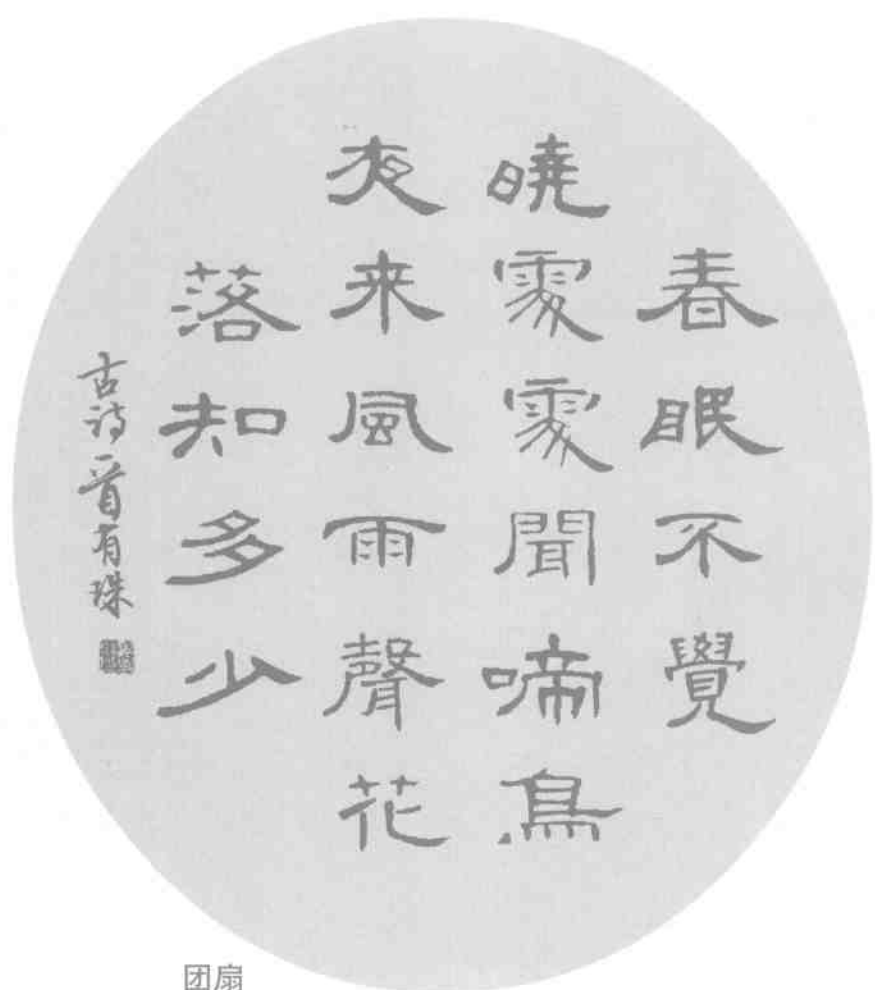 春眠不覺
曉處處聞啼鳥
夜来風雨聲花
落知多少
古诗一首有珠
团扇